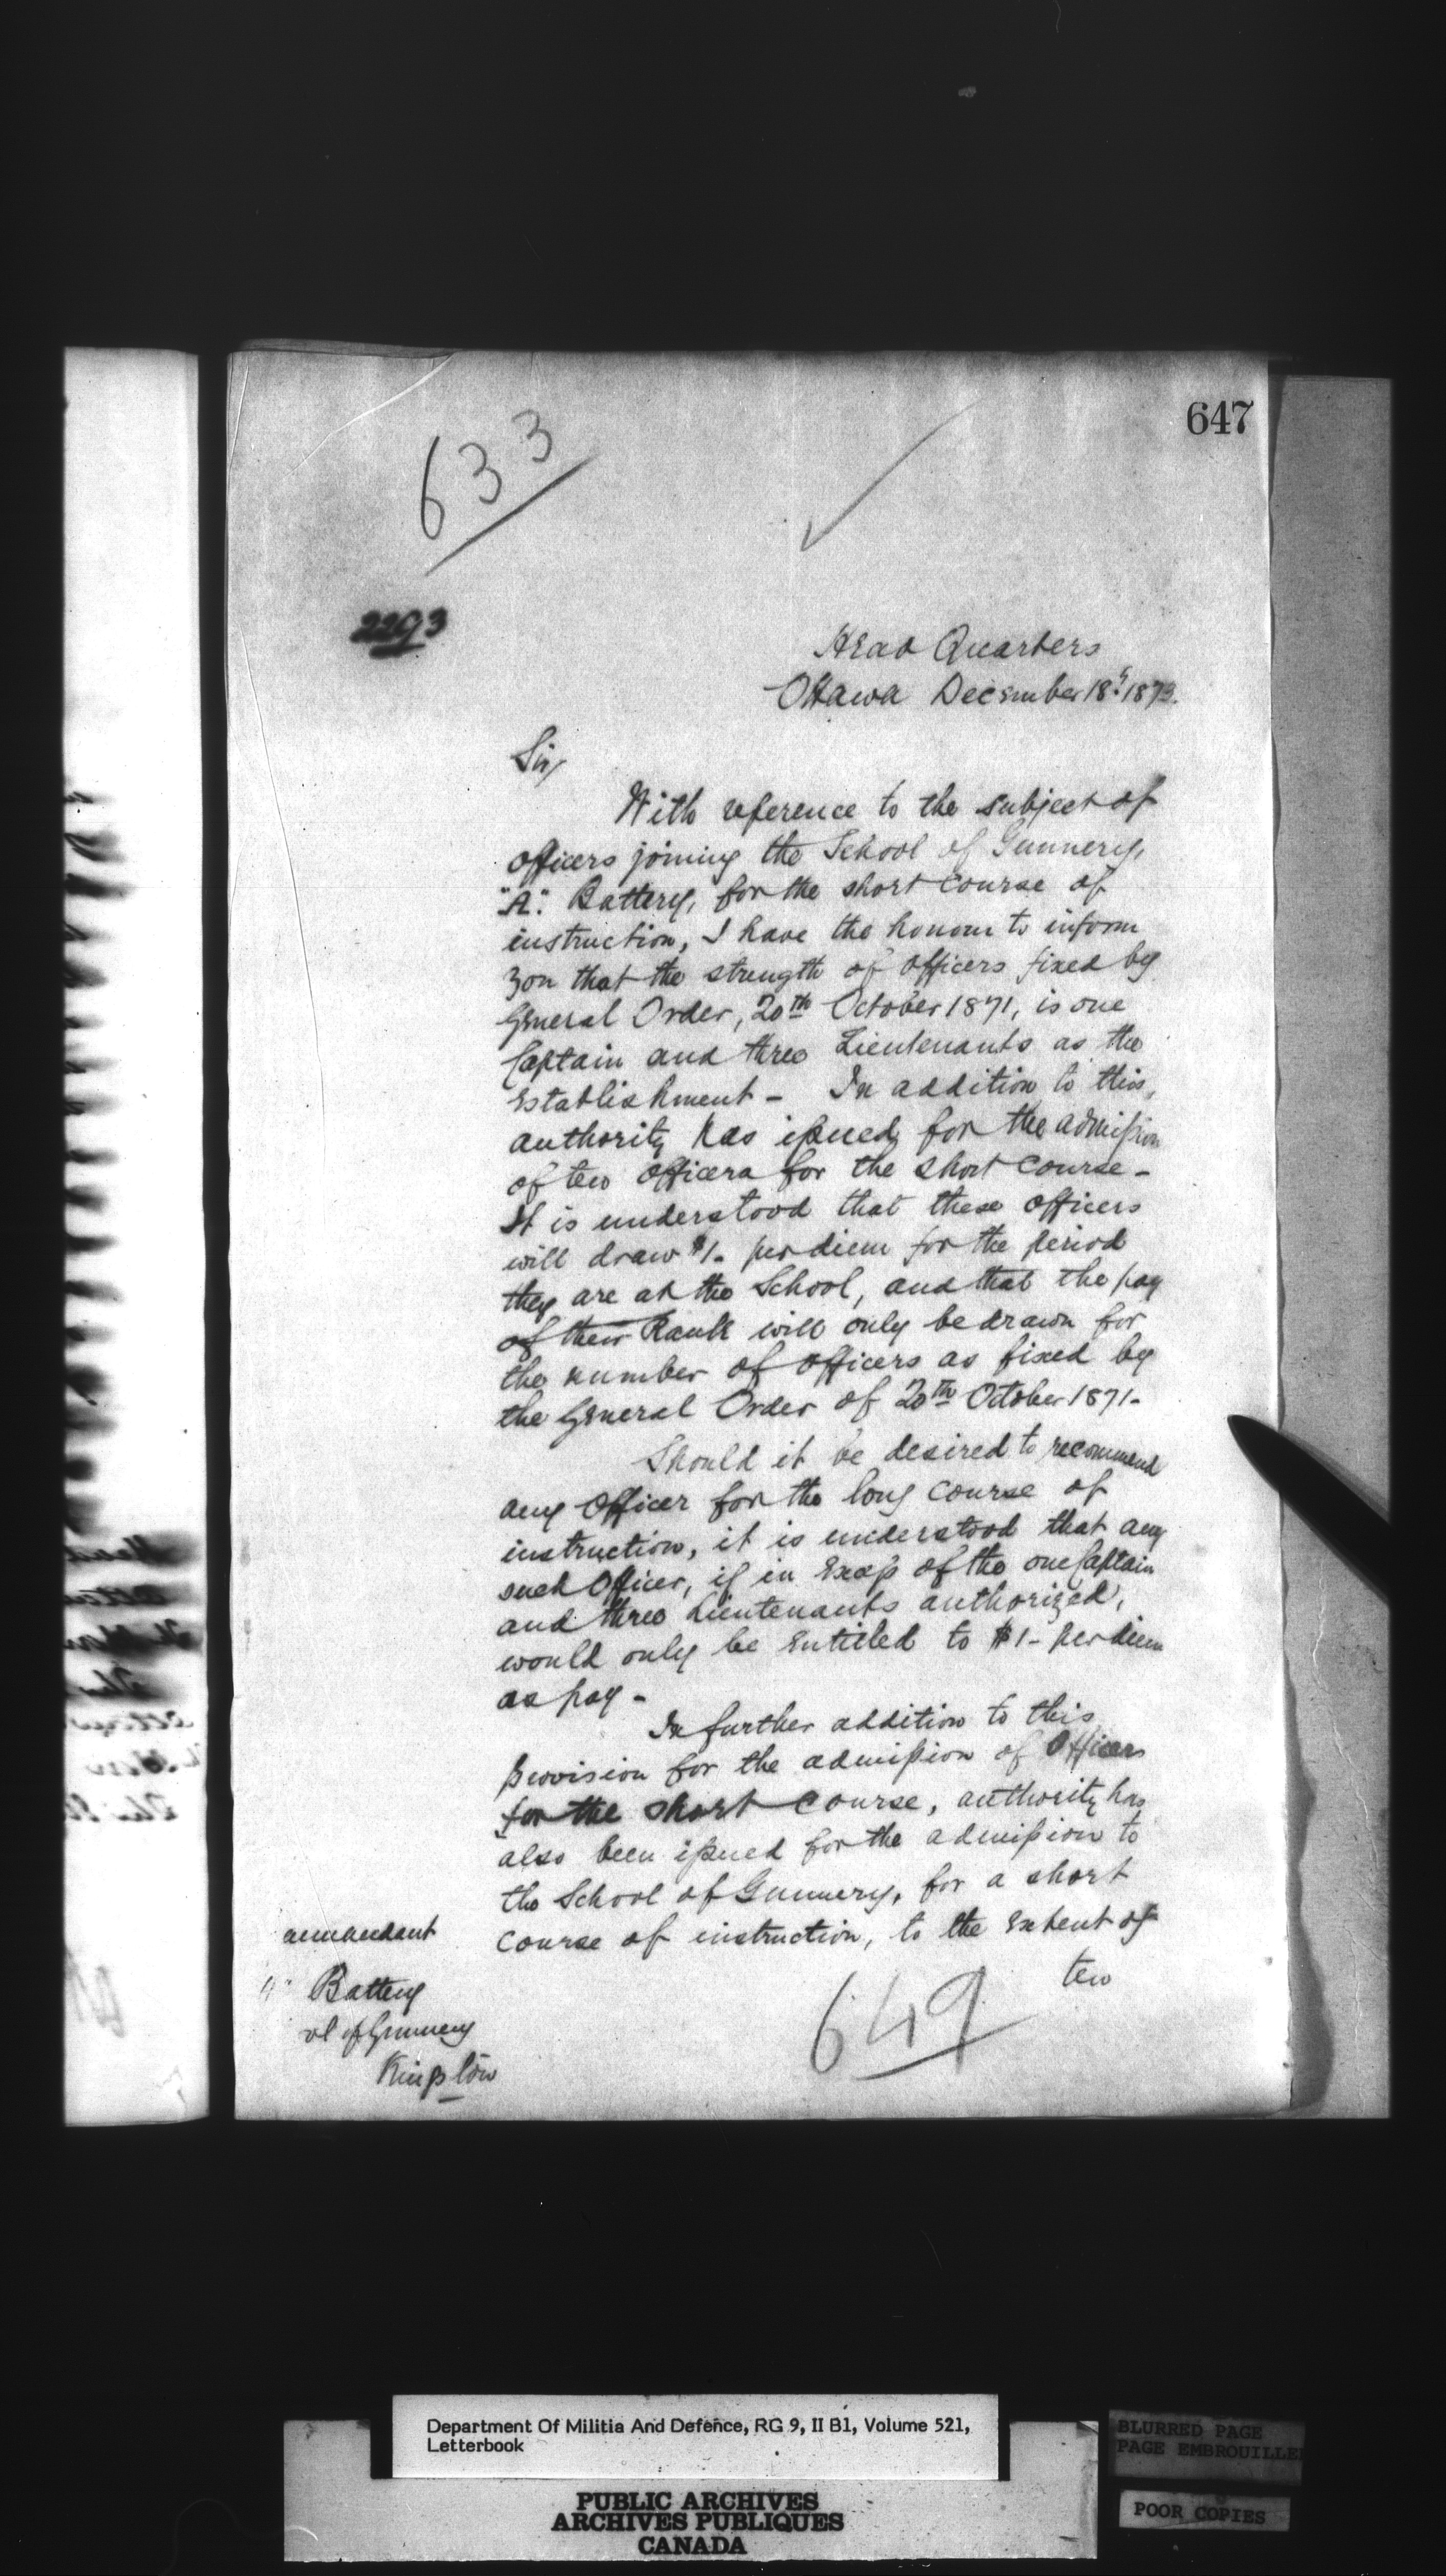 647
633
2293
Head Quarters
Ottawa December 18th 1873.
Sir,
With reference to the subject of
officers joining the School of Gunnery,
"A". Battery, for the short course of
instruction, I have the honour to inform
you that the strength of officers fixed by
General Order, 20th October 1871, is one
Captain and three Lieutenants as the
Establishment - In addition to this,
authority has issued for the admission
of two officers for the short course -
It is understood that these officers
will draw $1- per diem for the period
they are at the School, and that the pay
of their Rank will only be drawn for
the number of officers as fixed by
the General Order of 20th October 1871-
Should it be desired to recommend
any Officer for the long course of
instruction, it is understood that any
such Officer, if in Excess of the one Captain
and three Lieutenants authorized,
would only be Entitled to $1- per diem
as pay -
In further addition to this
provision for the admission of Officers
for the short course, authority has
also been issued for the admission to
the School of Gunnery, for a short
course of instruction, to the Extent of
two
ommandant
" Battery
ol of Gunnery
Kingston
649
Department Of Militia And Defence, RG 9, II B1, Volume 521,
Letterbook
BLURRED PAGE
PAGE EMBROUILLEE
POOR COPIES
PUBLIC ARCHIVES
ARCHIVES PUBLIQUES
CANADA